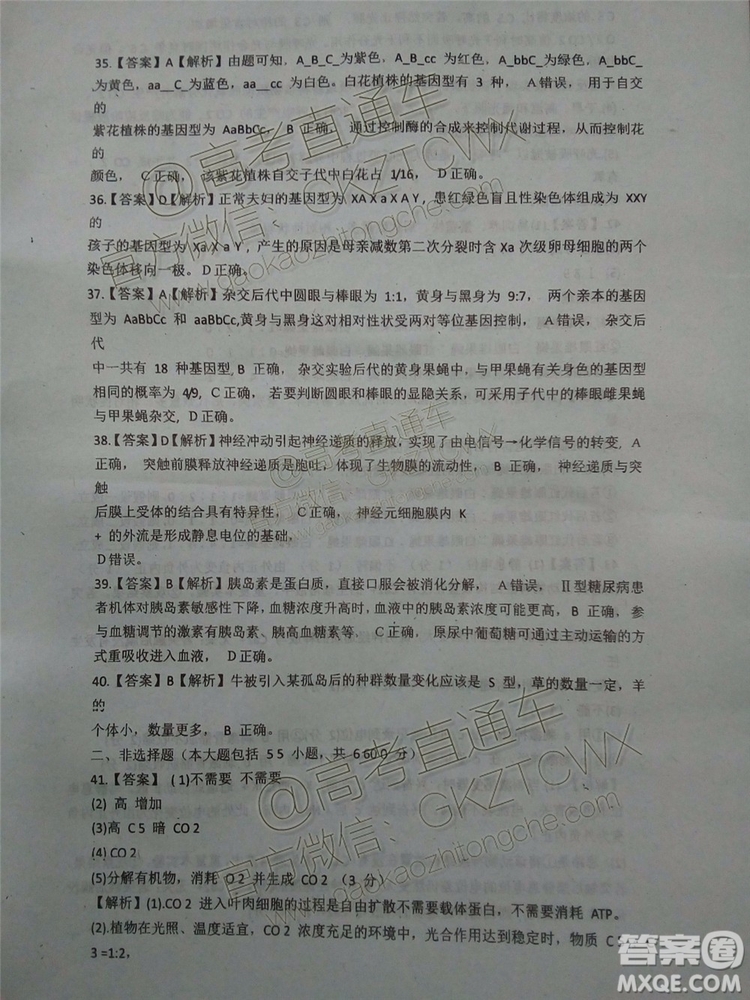 35.【答案】A【解析】由题可知，A_B_C_为紫色，A_B_cc 为红色，A_bbC_为绿色，A_bbC_
为黄色，aa__C_为蓝色，aa__cc 为白色。白花植株的基因型有 3 种， A 错误， 用于自交
的
紫花植株的基因型为 AaBbCc， B 正确， 通过控制酶的合成来控制代谢过程，从而控制花
的
颜色， C 正确， 该紫花植株自交子代中白花占 1/16， D 正确。
36.【答案】D【解析】正常夫妇的基因型为 XA X a X A Y，患红绿色盲且性染色体组成为 XXY
的
孩子的基因型为 Xa X a Y，产生的原因是母亲减数第二次分裂时含 Xa 次级卵母细胞的两个
染色体移向一极。 D 正确。
37.【答案】A【解析】杂交后代中圆眼与棒眼为 1:1，黄身与黑身为 9:7， 两个亲本的基因
型为 AaBbCc 和 aaBbCc,黄身与黑身这对相对性状受两对等位基因控制， A 错误， 杂交后
代
中一共有 18 种基因型, B 正确， 杂交实验后代的黄身果蝇中,与甲果蝇有关身色的基因型
相同的概率为 4/9, C 正确， 若要判断圆眼和棒眼的显隐关系，可采用子代中的棒眼雌果蝇
与甲果蝇杂交, D 正确。
38.【答案】D【解析】神经冲动引起神经递质的释放，实现了由电信号→化学信号的转变, A
正确， 突触前膜释放神经递质是胞吐，体现了生物膜的流动性， B 正确， 神经递质与突
触
后膜上受体的结合具有特异性， C 正确， 神经元细胞膜内 K
+ 的外流是形成静息电位的基础，
D 错误。
39.【答案】B【解析】胰岛素是蛋白质，直接口服会被消化分解， A 错误， Ⅱ型糖尿病患
者机体对胰岛素敏感性下降，血糖浓度升高时，血液中的胰岛素浓度可能更高， B 正确， 参
与血糖调节的激素有胰岛素、胰高血糖素等、 C 正确， 原尿中葡萄糖可通过主动运输的方
式重吸收进入血液， D 正确。
40.【答案】B【解析】牛被引入某孤岛后的种群数量变化应该是 S 型，草的数量一定，羊
的
个体小，数量更多， B 正确。
二、非选择题（本大题包括 5 5 小题，共 6 6 0 0 分）
41.【答案】 (1)不需要 不需要
(2) 高 增加
(3)高 C 5 暗 CO 2
(4) CO 2
(5)分解有机物，消耗 O 2 并生成 CO 2 （3 分）
【解析】(1).CO 2 进入叶肉细胞的过程是自由扩散不需要载体蛋白，不需要消耗 ATP。
(2).植物在光照、温度适宜、CO 2 浓度充足的环境中，光合作用达到稳定时，物质 C
3 =1:2，
@高考直通车
官方微信：GKZTCWX
www.gaokaozhitongche.com
@高考直通车
官方微信：GKZTCWX
www.gaokaozhitongche.com
答案圈
MXQE.COM